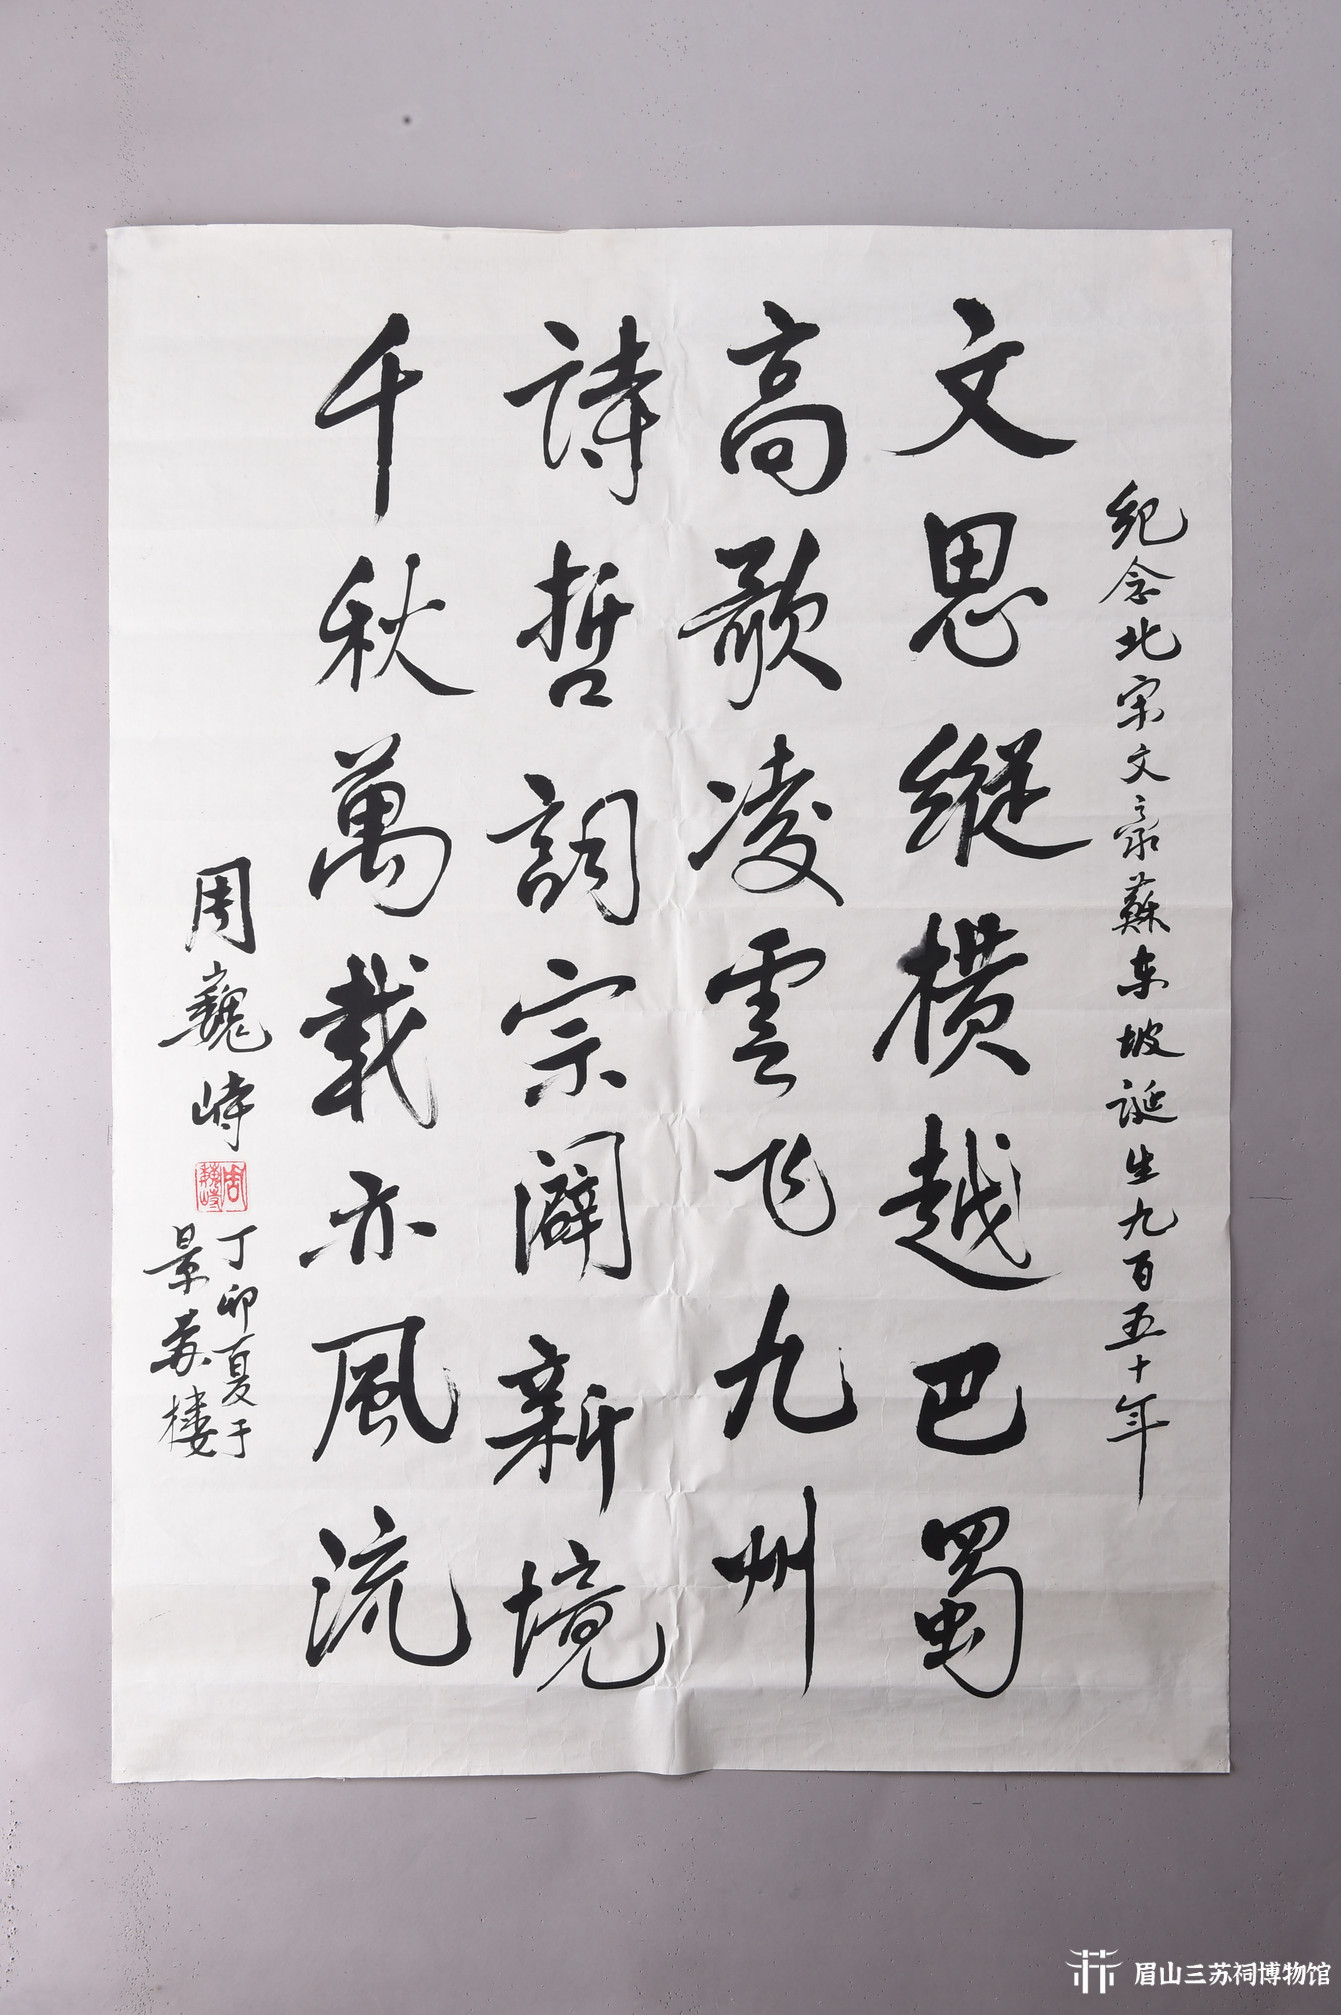 纪念北宋文豪蘇东坡誕生九百五十年
文思縱横越巴蜀
高歌凌雲飞九州
詩哲詞宗闢新境
千秋萬載亦風流
周巍峙
周巍峙
丁卯夏于
景苏樓
眉山三苏祠博物馆